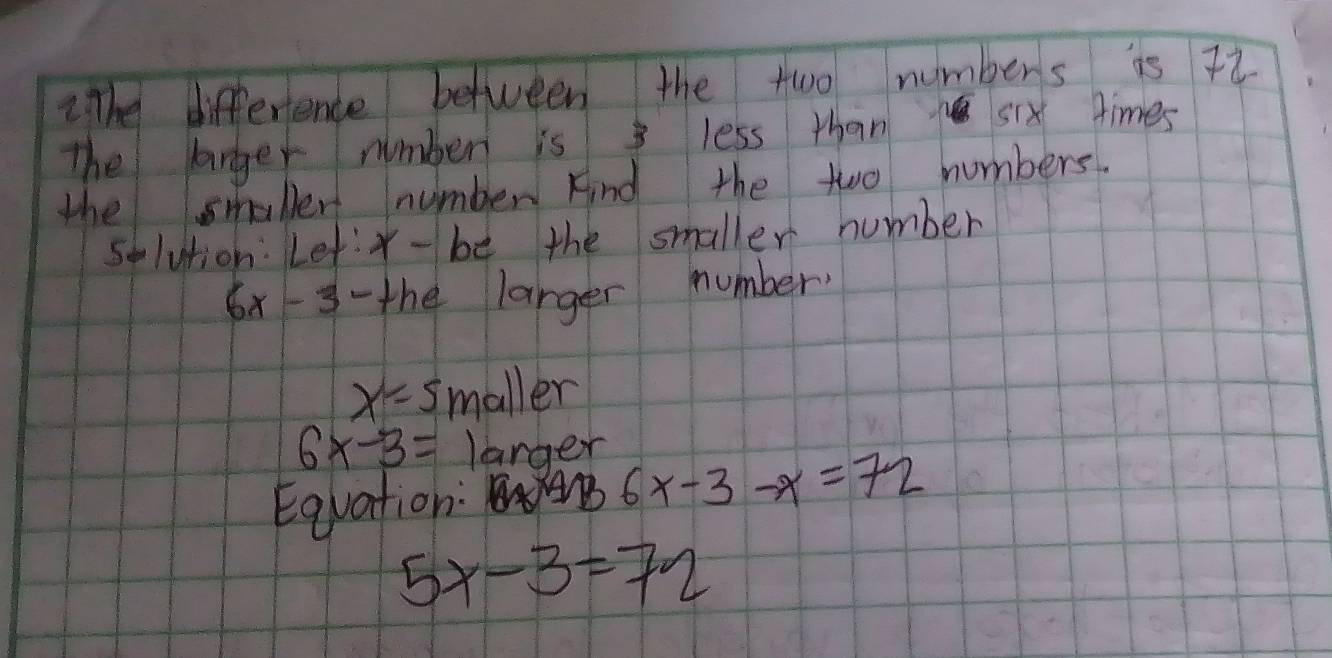 2. The difference between the two numbers is 72
The larger number is 3 less than six times
the smaller number Find the two numbers.
Solution: Let: x - be the smaller number
6x - 3 - the larger number.
x = smaller
6x - 3 = larger
Equation: 6x - 3 - x = 72
5x - 3 = 72